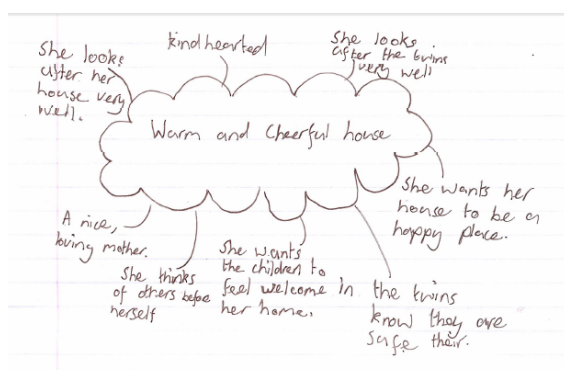 She looks
after her
house very
well.
kindhearted
She looks
after the twins
very well
Warm and Cheerful house
She wants her
house to be a
happy place.
A nice,
loving mother.
She thinks
of others before
herself
She wants
the children to
feel welcome in
her home.
the twins
know they are
safe their.